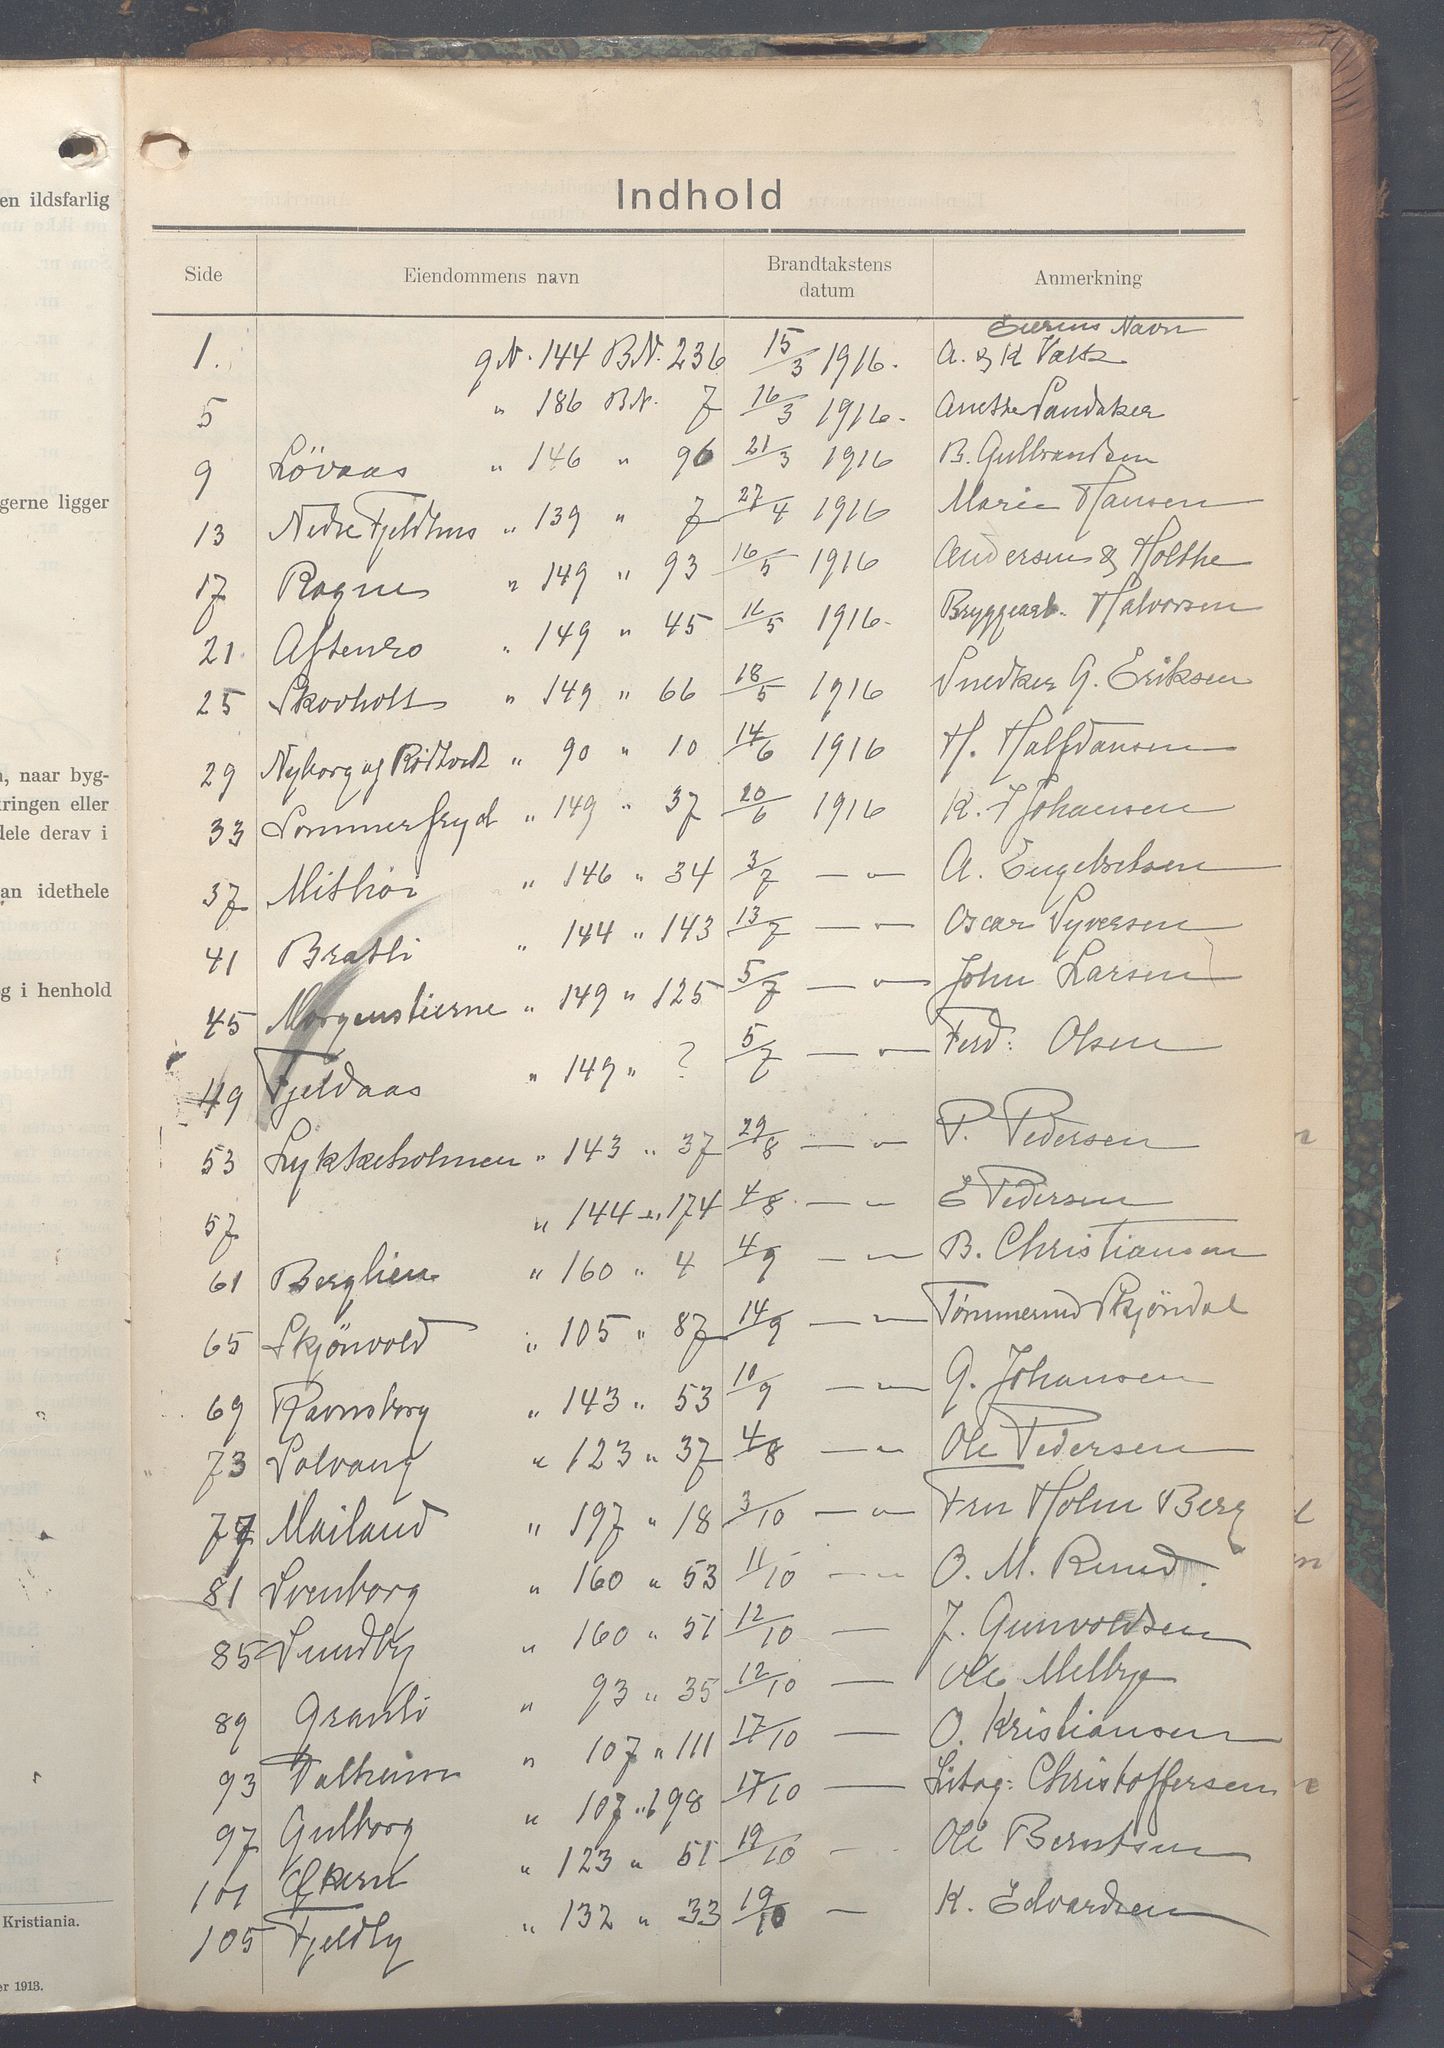 en ildsfarlig
gerne ligger
n, naar byg-
kringen eller
dele derav i
an idethele
og i henhold
Kristiania.
er 1913.
Indhold
Side Eiendommens navn Brandtakstens datum Anmerkning
Eierens Navn
1. gN. 144 BN. 236 15/3 1916. A. & K
5 " 186 BN. 7 16/3 1916. Anethe Sandaker
9 Lövaas " 146 " 96 21/3 1916 B. Gulbrandsen
13 Nedre Fjeldhus " 139 " 7 27/4 1916 Marie Hansen
17 Ragne " 149 " 93 16/5 1916 Andersen & Holthe
21 Aftenro " 149 " 45 16/5 1916. Bryggearb. Halvorsen
25 Skovholt " 149 " 66 18/5 1916 Snedker G. Eriksen
29 Nyborg og Rödtvedt " 90 " 10 14/6 1916 H. Halfdansen
33 Sommerfryd " 149 " 37 20/6 1916 K. J Johansen
37 " 146 " 34 3/7 — " — A. Engebretsen
41 Bratli " 144 " 143 13/7 — " — Oscar Syversen
45 Morgenstierne " 149 " 125 5/7 — " — John Larsen
49 Fjeldaas " 149 " ? 5/7 — " — Ferd: Olsen
53 Lykkeholmen " 143 " 37 29/8 — " P. Pedersen
57 " 144 " 174 4/8 — " E Pedersen
61 Berglien " 160 " 4 4/9 — " B. Christiansen
65 Skjönvold " 105 " 87 14/9 — " Tømmermd Skjöndal
69 Ravnsborg " 143 " 53 10/9 — " G. Johansen
73 Solvang " 123 " 37 4/8 — " Ole Pedersen
77 Mailand " 197 " 18 3/10 — " Fru Holm Berg
81 Svenborg " 160 " 53 11/10 — " O. M. Ruud.
85 Sundby " 160 " 51 12/10 — J. Gunvoldsen
89 Granli " 93 " 35 12/10 — Ole Melbye
93 Dalheim " 107 " 111 17/10 — O. Kristiansen
97 Gulborg " 107 " 198 17/10 — Litog: Christoffersen
101 Økern " 123 " 51 19/10 — Ole Berntsen
105 Fjeldby " 132 " 33 19/10 — K. Edvardsen